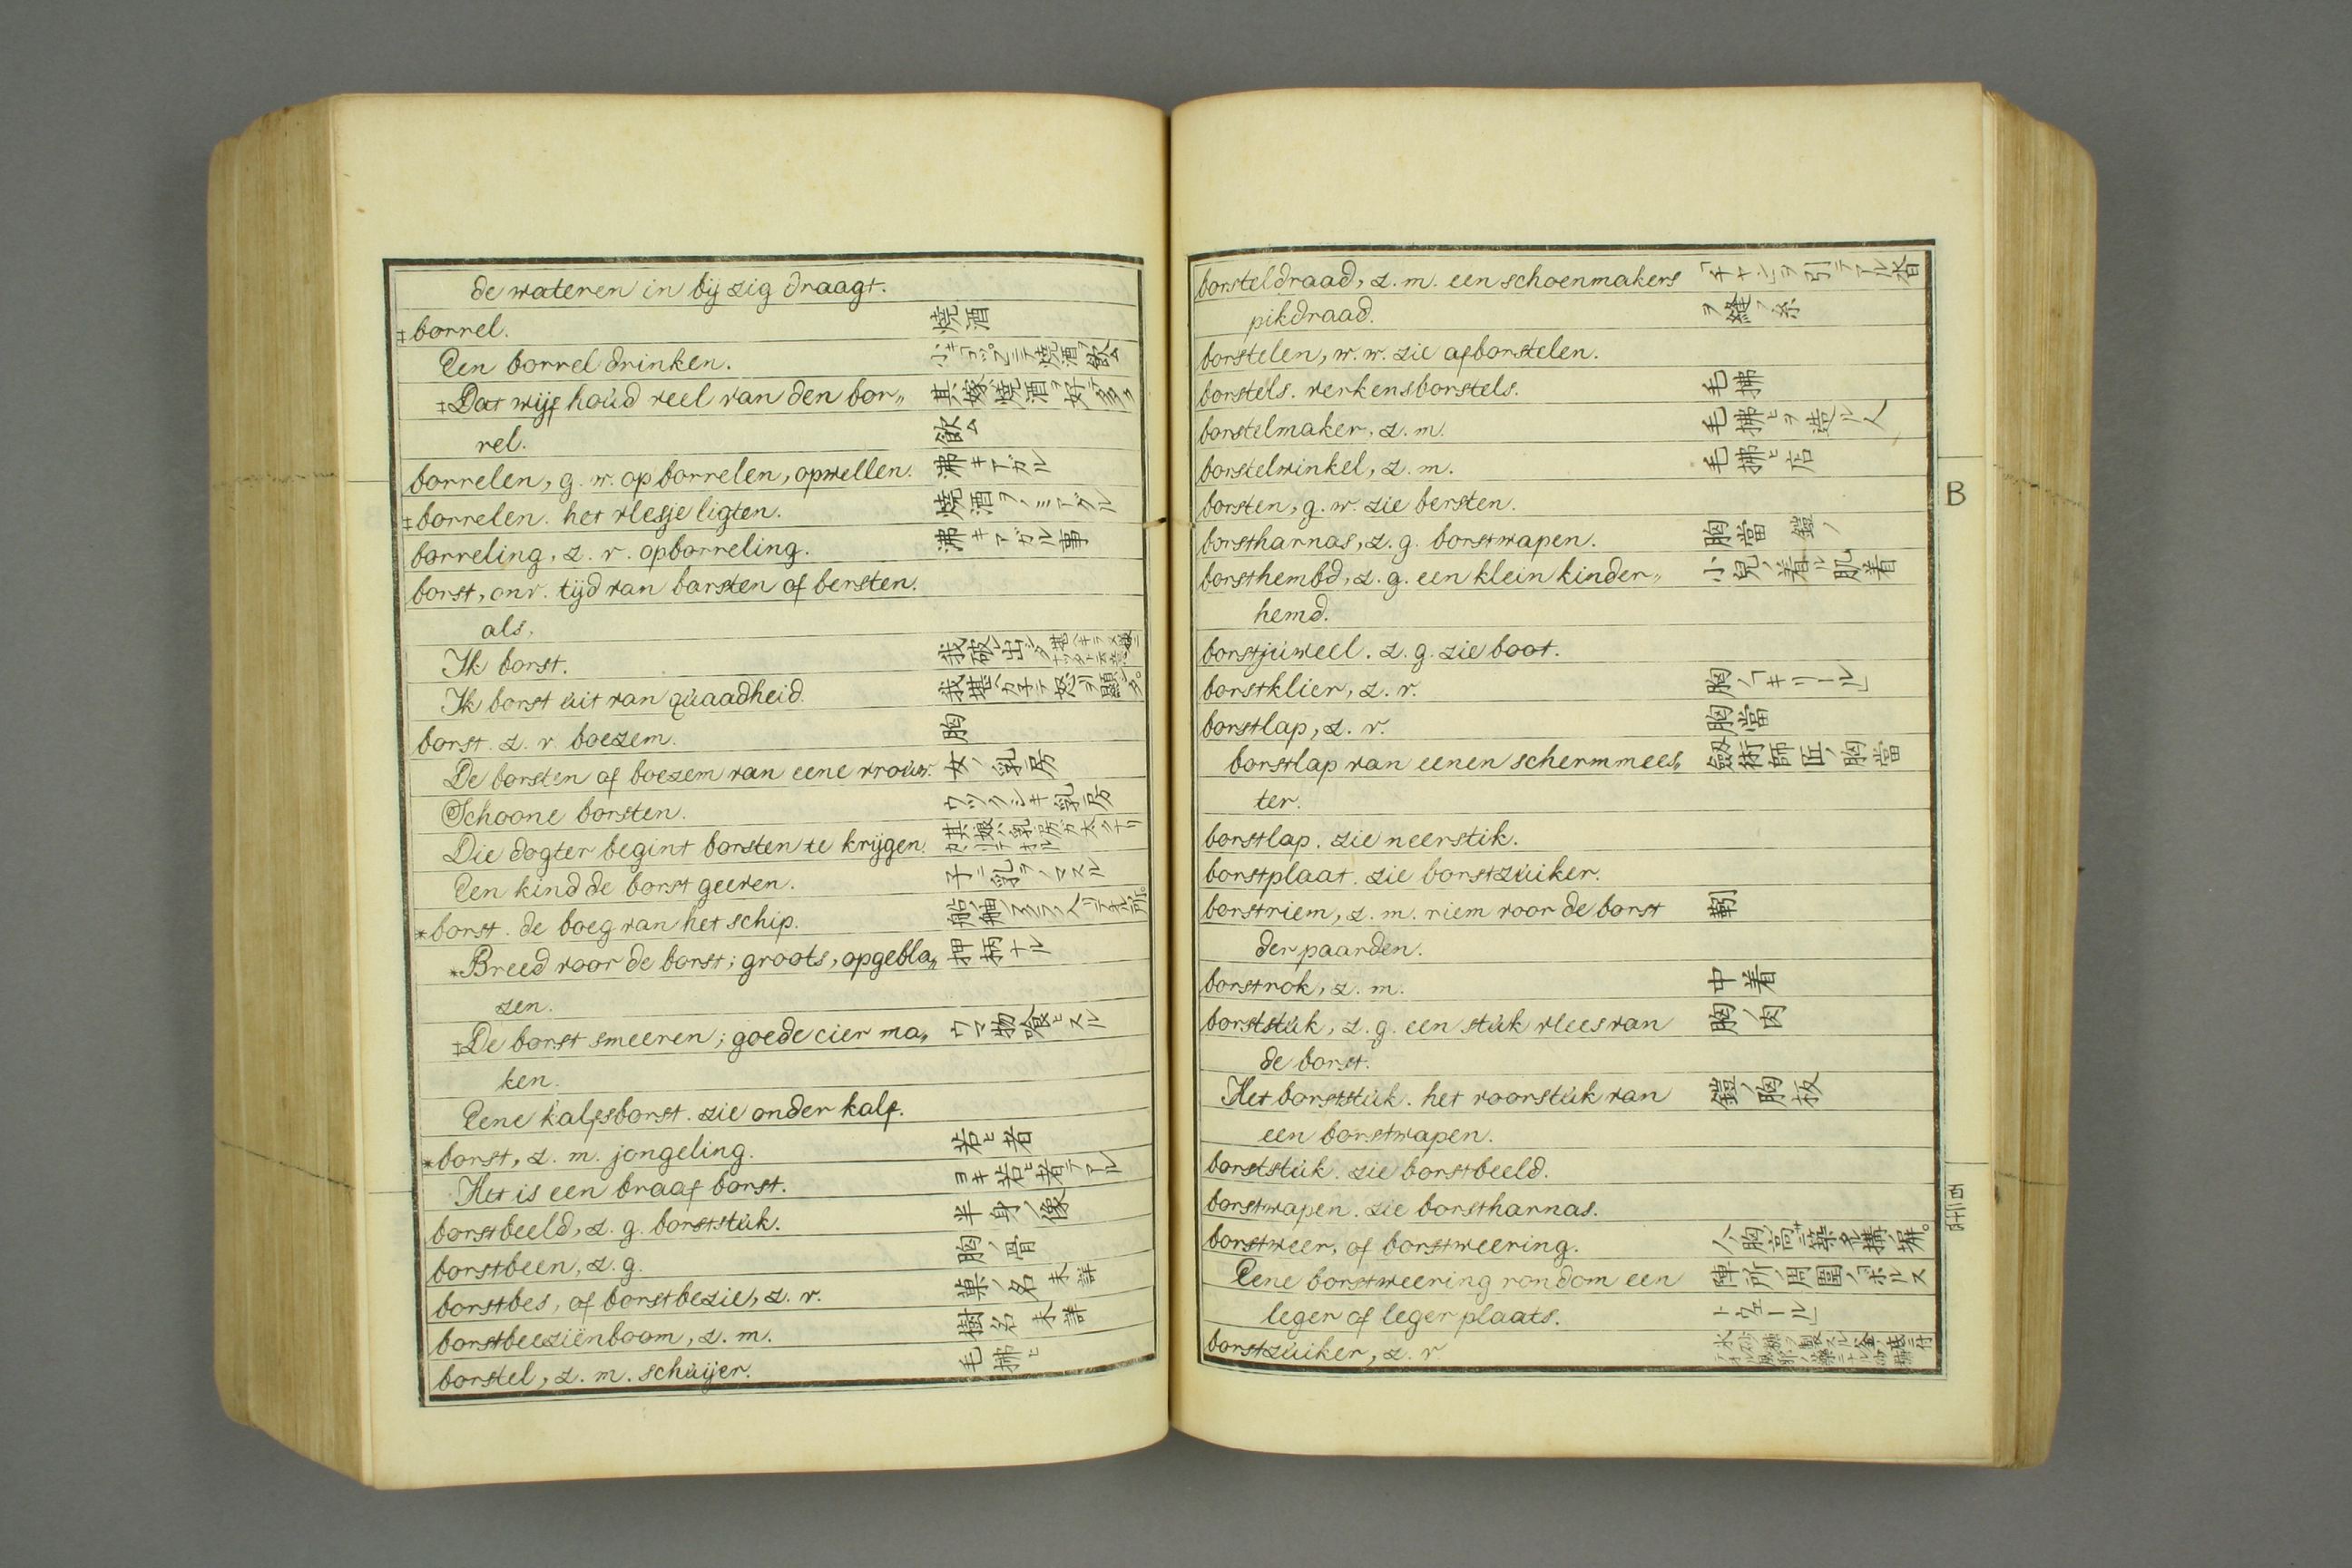 de wateren in bij zig draagt.
‡borrel. 燒酒
Een borrel drinken. 小キコップニテ燒酒ヲ飲ム
‡Dat wijf houd veel van den bor„ 其嫁燒酒ヲ好テ多ク
rel. 飲ム
borrelen, g. w. opborrelen, opwellen. 沸キアガル
‡borrelen. het vlesje ligten. 燒酒ヲノミアグル
borreling, z. v. opborreling. 沸キアガル事
borst, onv. tijd van barsten of bersten.
als.
Ik borst. 我破レ出シタ
Ik borst uit van quaadheid. 我堪ヘカネテ怒リヲ顯シタ。
borst. z. v. boezem. 胸
De borsten of boezem van eene vrouw. 女ノ乳房
Schoone borsten. ウツクシキ乳房
Die dogter begint borsten te krijgen. 其娘ハ乳房ガ大クナリ
カヽリテオル
Een kind de borst geeven. 子ニ乳ヲノマスル
*borst. de boeg van het schip. 船ノ舳
*Breed voor de borst; groots, opgebla„ 押柄ナル
zen.
‡De borst smeeren; goede cier ma„ ウマ物喰ヒスル
ken.
Eene kalfsborst. zie onder kalf.
*borst, z. m. jongeling. 若ヒ者
Het is een braaf borst. ヨキ若ヒ者テアル
borstbeeld, z. g. borststuk. 半身ノ像
borstbeen, z. g. 胸ノ骨
borstbes, of borstbezie, z. v. 菓ノ名 未詳
borstbeeziënboom, z. m. 樹ノ名 未詳
borstel, z. m. schuijer. 毛拂ヒ
borsteldraad, z. m. een schoenmakers 「チヤン」ヲ引テアル沓
pikdraad. ヲ縫フ糸
borstelen, w. w. zie afborstelen.
borstels. verkensborstels. 毛拂
borstelmaker, z. m. 毛拂ヒヲ造ル人
borstelwinkel, z. m. 毛拂ヒ店
borsten, g. w. zie bersten.
B
borstharnas, z. g. borstwapen. 胸當 鎧ノ
borsthembd, z. g. een klein kinder„ 小兒ノ着ル肌着
hemd.
borstjuweel. z. g. zie boot.
borstklier, z. v. 胸ノ「キリール」
borstlap, z. v. 胸當
borstlap van eenen schermmees„ 劔術師匠ノ胸當
ter.
borstlap. zie neerstik.
borstplaat. zie borstzuiker.
borstriem, z. m. riem voor de borst 靷
der paarden.
borstrok, z. m. 中着
borststuk, z. g. een stuk vlees van 胸ノ肉
de borst.
Het borststuk. het voorstuk van 鎧ノ胸板
een borstwapen.
borststuk. zie borstbeeld.
borstwapen. zie borstharnas.
borstweer, of borstweering. 人ノ胸高サニ築タル搆ノ塀。
Eene borstweering rondom een 陣所ノ周圍ノ「ボルス
leger of leger plaats. トウェール」
borstzuiker, z. v.